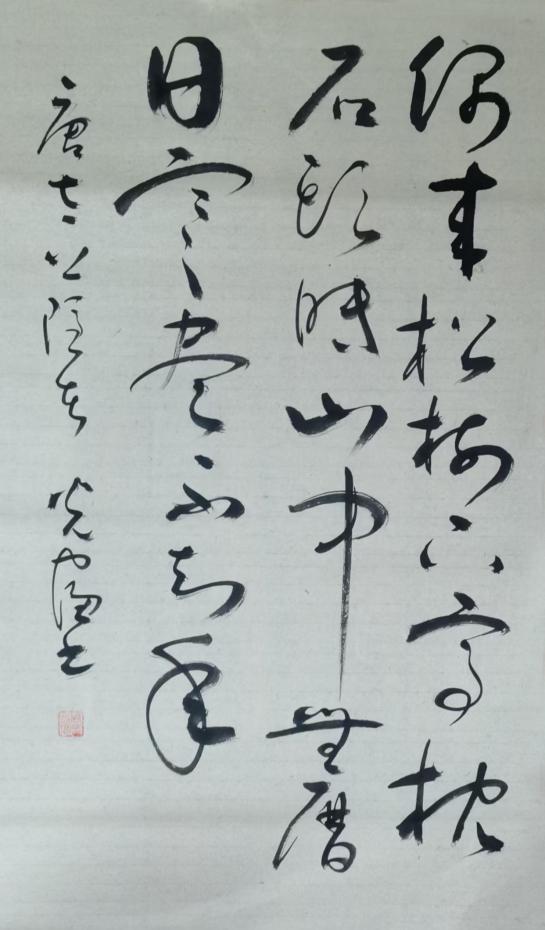 偶来松树下高枕
石头眠山中無曆
日寒尽不知年
唐太上隐者 书